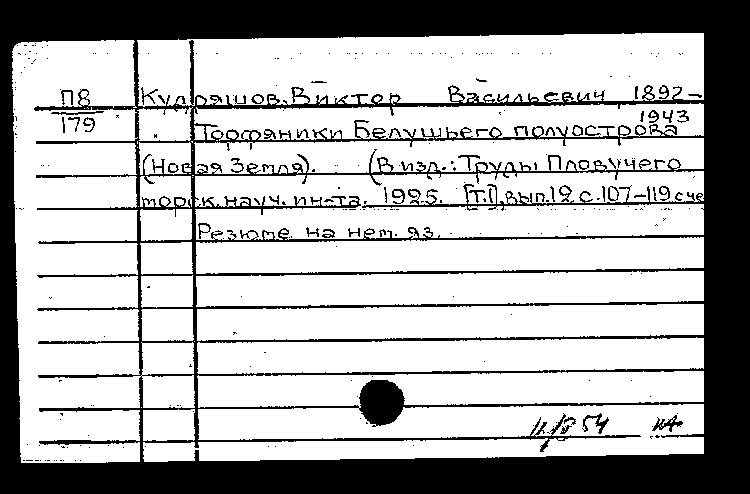 П8 Кудряшов, Виктор Васильевич, 1892-
179 1943
Торфяники Белушьего полуострова
(Новая Земля). (В изд.: Труды Пловучего
морск. науч. ин-та. 1925. [Т.I], вып.12 с.107-119 с че
Резюме на нем. яз.
54